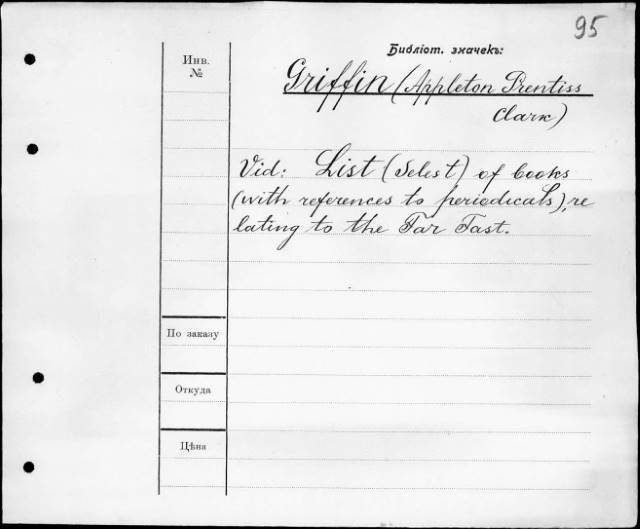 95
Библіот. значекъ:
Инв.
№
Griffin (Appleton Prentiss
Clark)
Vid: List (Select) of books
(with references to periodicals), re
lating to the Far East.
По заказу
Откуда
Цѣна